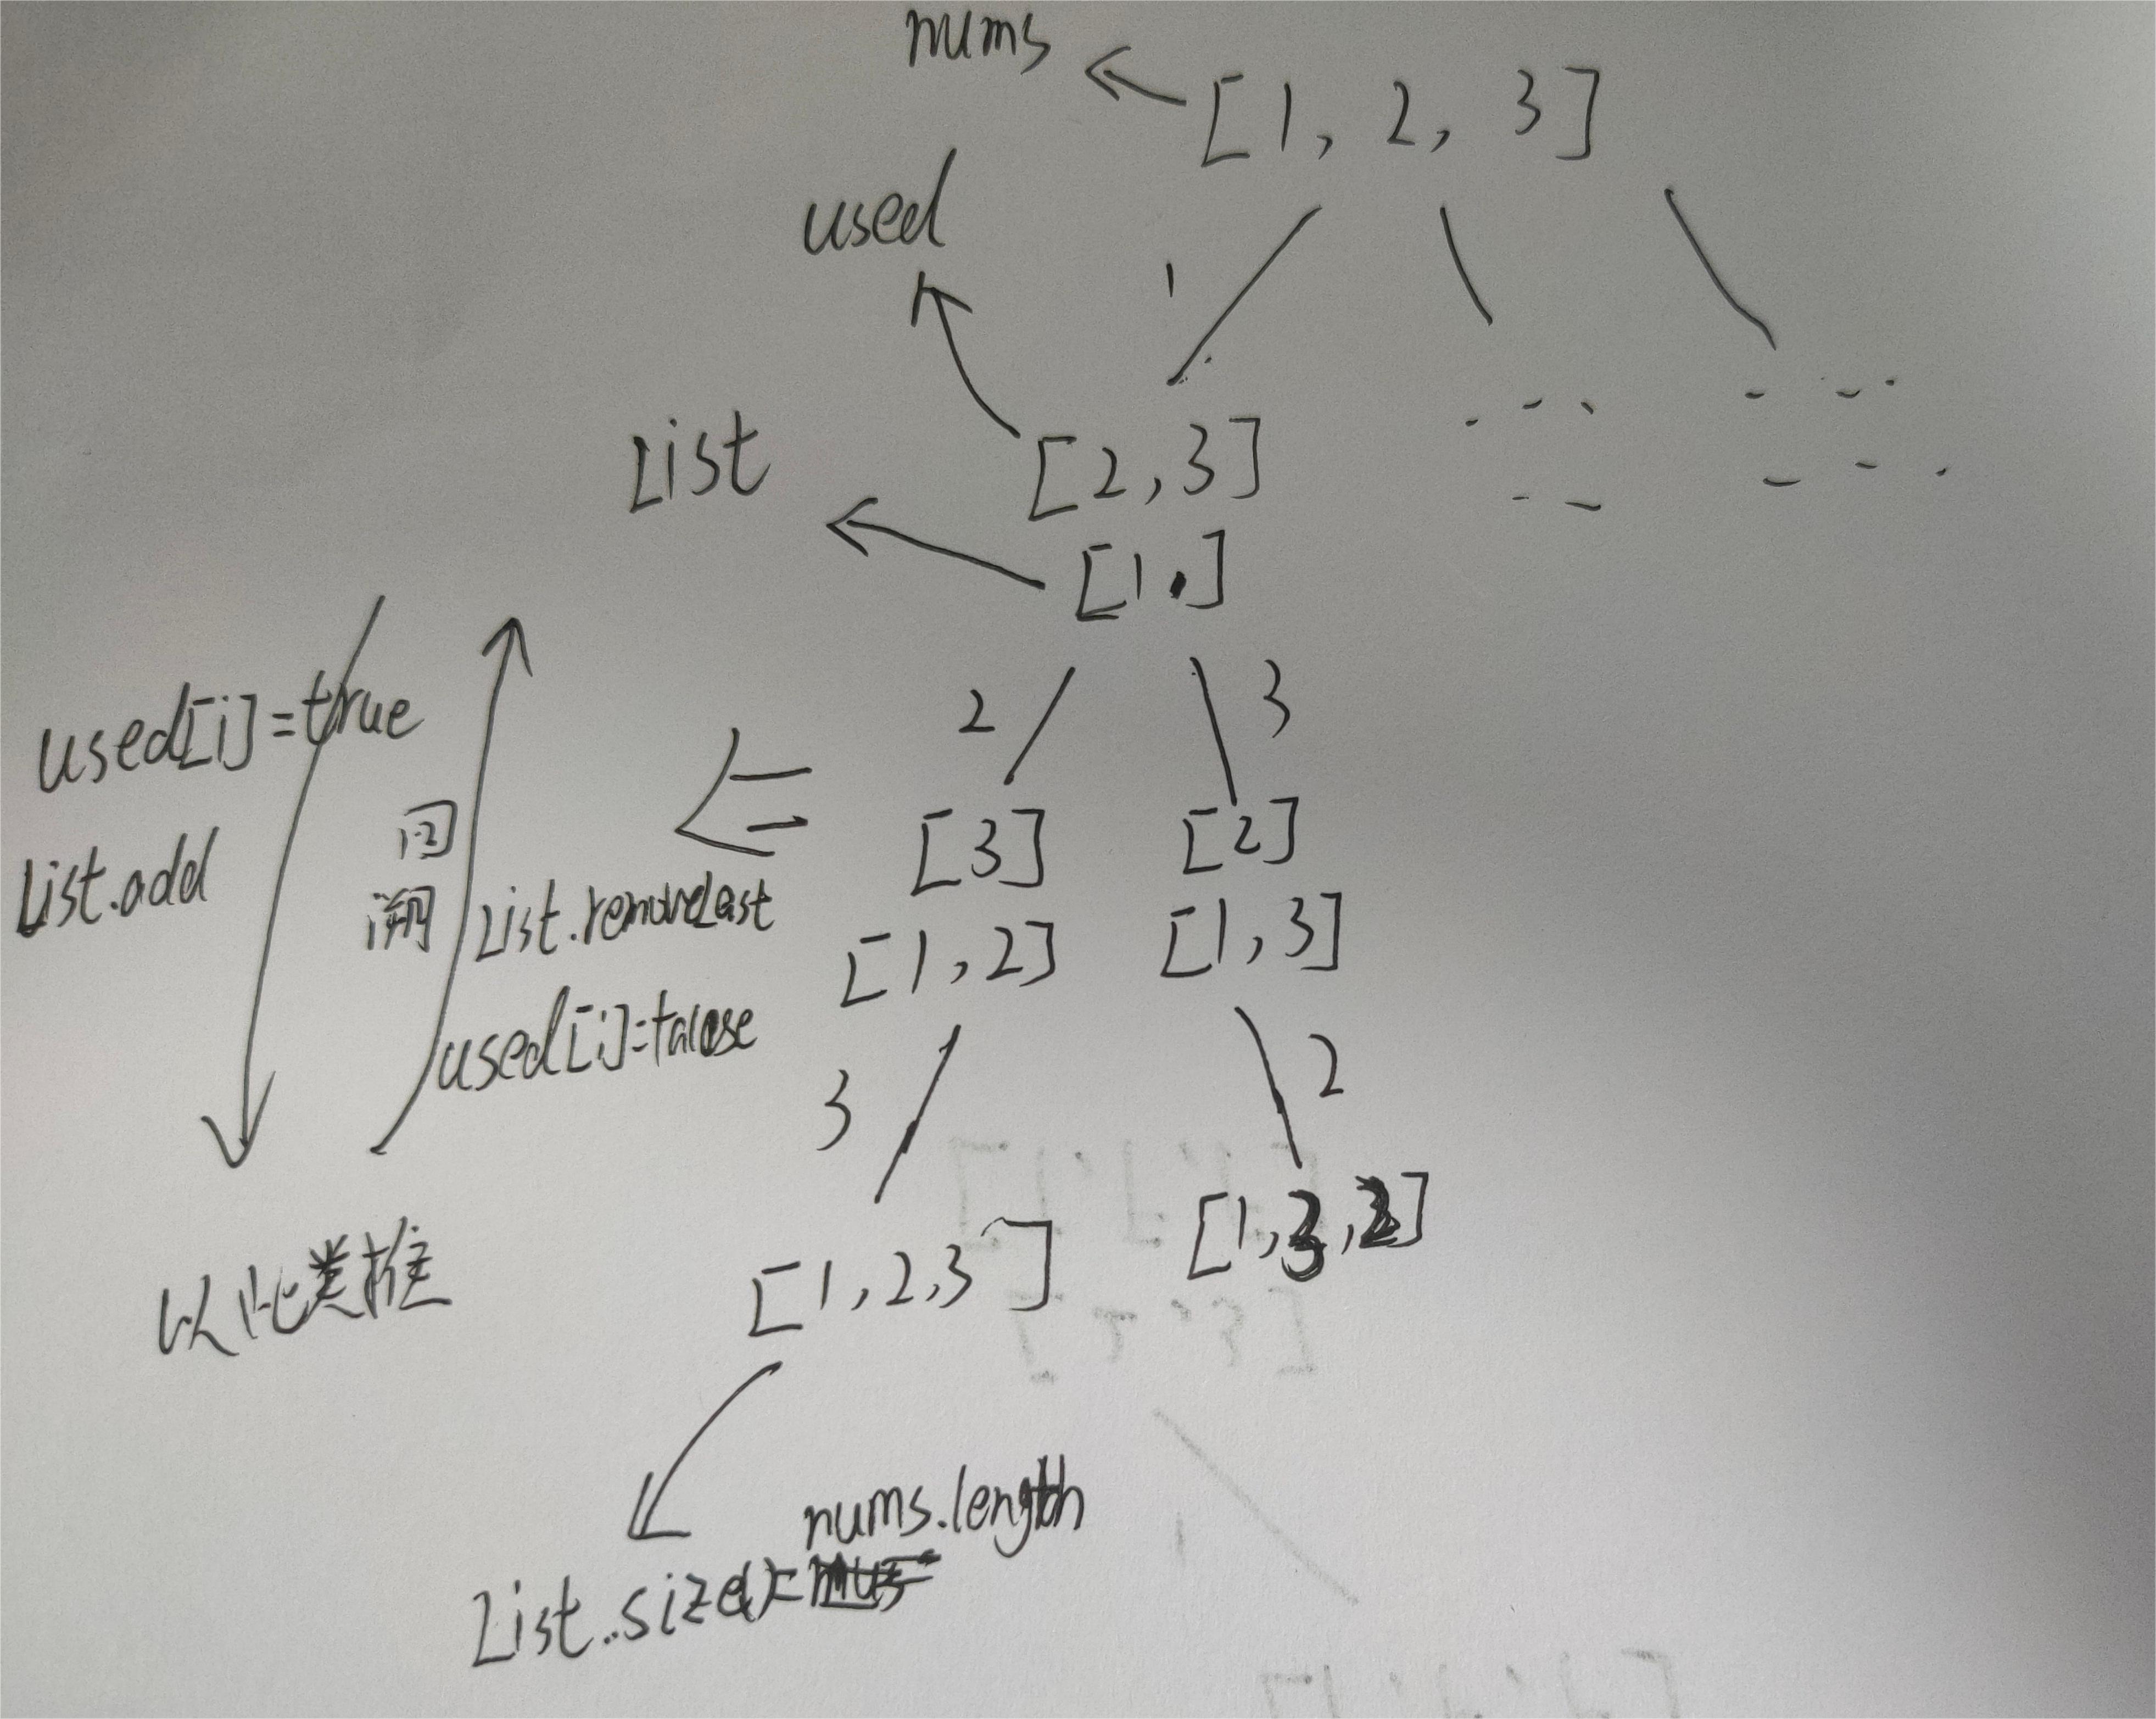 nums
[1, 2, 3]
used
1
List
[2,3]
[1,]
2
3
used[i]=true
List.add
回
溯
List.removeLast
used[i]=false
[3]
[2]
[1,2]
[1,3]
3
2
以此类推
[1,2,3]
[1,3,2]
nums.length
List.size()=